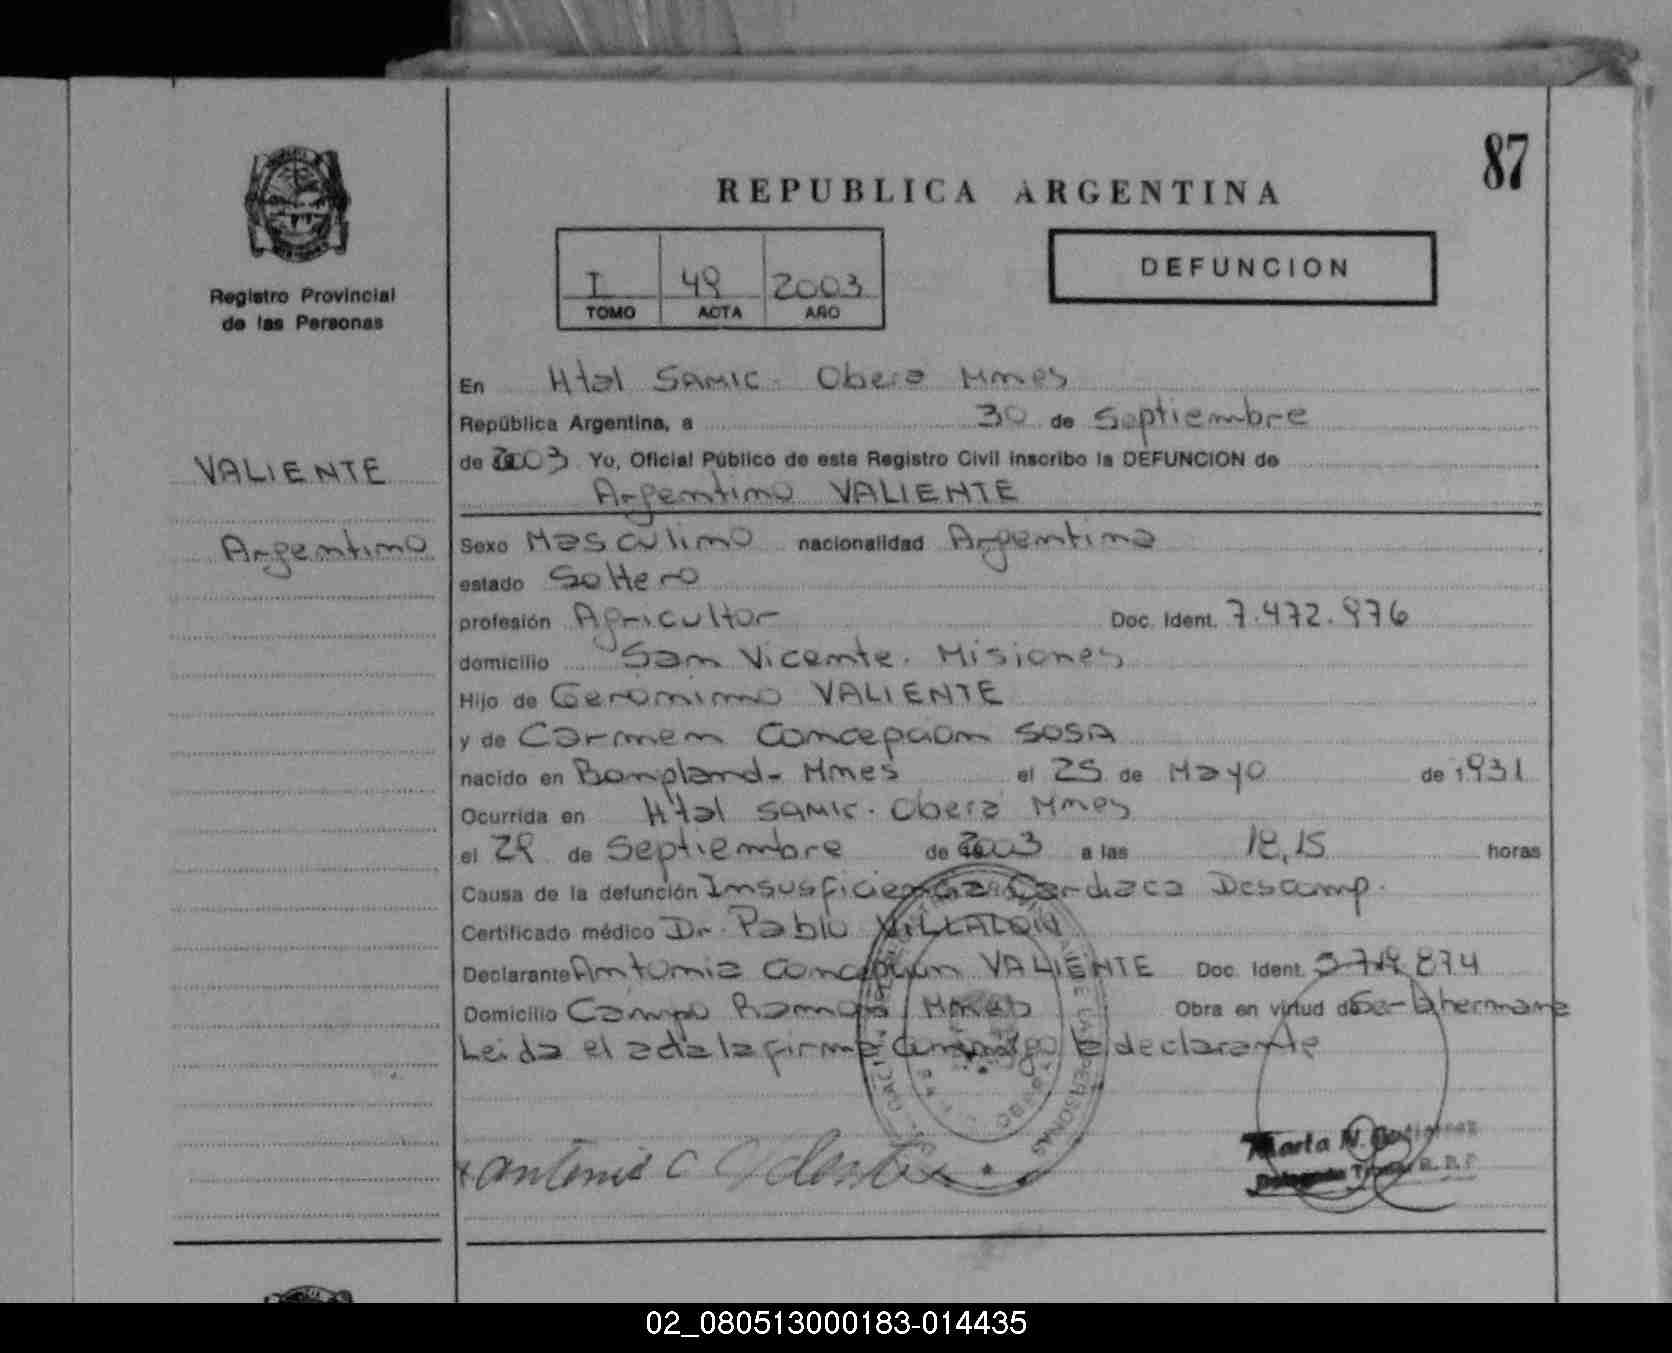 87
REPUBLICA ARGENTINA
I 49 2003
TOMO ACTA AÑO
DEFUNCION
Registro Provincial
de las Personas
VALIENTE
Argentino
En Htal SAMIC. Oberá Mnes
República Argentina, a 30 de Septiembre
de 2003 Yo, Oficial Público de este Registro Civil inscribo la DEFUNCION de
Argentino VALIENTE
Sexo Masculino nacionalidad Argentina
estado Soltero
profesión Agricultor Doc. Ident. 7.472.976
domicilio San Vicente. Misiones
Hijo de Geronimo VALIENTE
y de Carmen Concepcion SOSA
nacido en Bonpland- Mnes el 25 de Mayo de 1931
Ocurrida en Htal SAMIC. Oberá Mnes
el 29 de Septiembre de 2003 a las 18,15 horas
Causa de la defunción Insusficiencia Cardiaca Descomp.
Certificado médico Dr. Pablo VILLALON
Declarante Antonia Concepcion VALIENTE Doc. Ident. 874
Domicilio Campo Ramon Mnes Obra en virtud de Ser la hermana
Leida el acta la firma conmigo la declarante
Antonia C
Marta N.
02_080513000183-014435